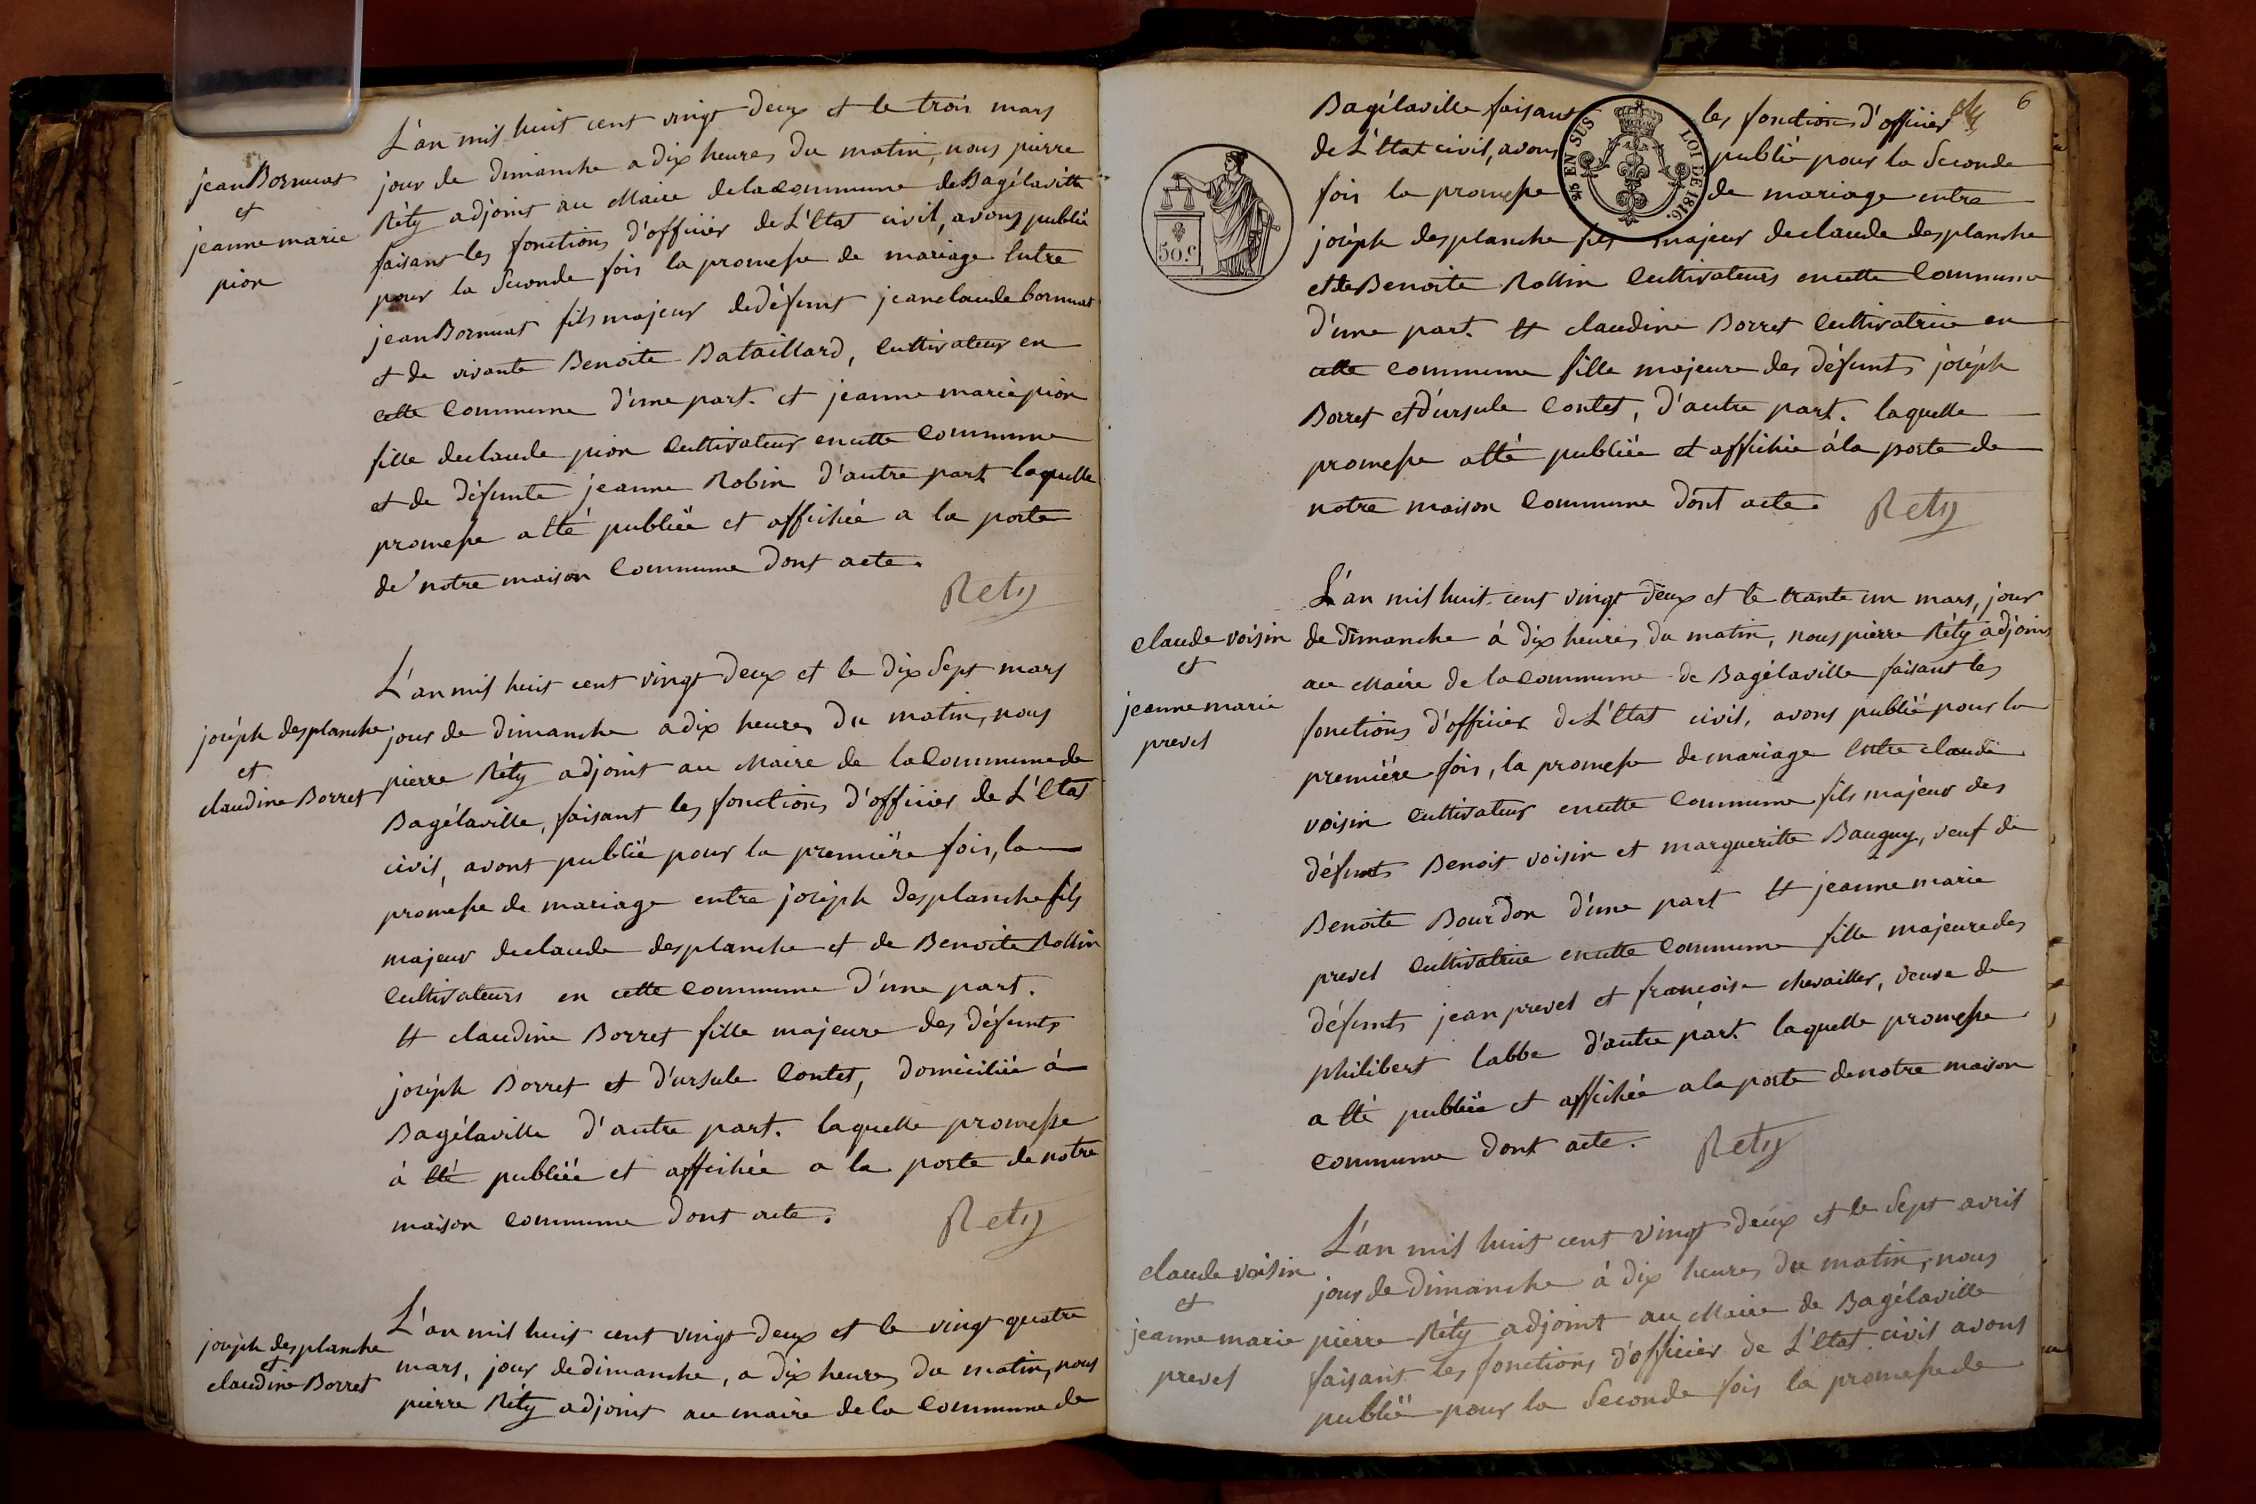 L'an mil huit cent vingt deux et le trois mars
jean Bornuat
et
jeanne marie
pion
jour de dimanche a dix heures du matin, nous pierre
Réty adjoint au Maire de la commune de Bagélaville
faisant les fonctions d'officier de L'Etat civil, avons publié
pour la Seconde fois la promesse de mariage Entre
jean Bornuat fils majeur de défunt jean claude bornuat
et de vivante Benoite Bataillard, Cultivateur en
cette Commune d'une part. et jeanne marie pion
fille de claude pion Cultivateur en cette Commune
et de défunte jeanne Robin d'autre part laquelle
promesse a Eté publiée et affichée a la porte
de notre maison Commune dont acte.
Rety
L'an mil huit cent vingt deux et le dix Sept mars
joséph desplanche
et
claudine Borret
jour de dimanche a dix heures du matin, nous
pierre Réty adjoint au Maire de la Commune de
Bagélaville, faisant les fonctions d'officier de L'Etat
civil, avont publié pour la première fois, la
promesse de mariage entre joséph desplanche fils
majeur de claude desplanche et de Benoite Rollin
Cultivateurs en cette Commune d'une part.
Et claudine Borret fille majeure des défunts
joséph Borret et d'ursule Contet, domiciliée à
Bagélaville d'autre part. laquelle promesse
à Eté publiée et affichée a la porte de notre
maison Commune dont acte.
Rety
joséph desplanche
et
claudine Borret
L'an mil huit cent vingt deux et le vingt quatre
mars, jour de dimanche, a dix heures du matin, nous
pierre Réty adjoint au maire de la Commune de
6
EN SUS
LOI DE 1816.
50.c
Bagélaville faisant les fonctions d'officier
de L'Etat civil, avons publié pour la Seconde
fois la promesse de mariage entre
joséph desplanche fils majeur de claude desplanche
et de Benoite Rollin Cultivateurs en cette Commune
d'une part. Et claudine Borret Cultivatrice en
cette commune fille majeure des défunts joséph
Borret et d'ursule Contet, d'autre part. laquelle
promesse a Eté publiée et affichée à la porte de
notre maison Commune dont acte.
Rety
L'an mil huit cent vingt deux et le trante un mars, jour
claude voisin
et
jeanne marie
prevel
de dimanche à dix heures du matin, nous pierre Réty adjoint
au Maire de la Commune de Bagélaville faisant les
fonctions d'officier de L'Etat civil, avons publié pour la
première fois, la promesse de mariage Entre claude
voisin Cultivateur en cette Commune fils majeur des
défunts Benoit voisin et margueritte Bauguy, veuf de
Benoite Bourdon d'une part Et jeanne marie
prevel Cultivatrice en cette Commune fille majeure des
défunts jean prevel et francoise chevailler, veuve de
philibert labbe d'autre part. laquelle promesse
a Eté publiée et affichée a la porte de notre maison
Commune dont acte.
Rety
claude voisin
et
jeanne marie
prevel
L'an mil huit cent vingt deux et le Sept avril
jour de dimanche à dix heures du matin, nous
pierre Réty adjoint au Maire de Bagélaville
faisant les fonctions d'officier de L'Etat civil avons
publié pour la Seconde fois la promesse de